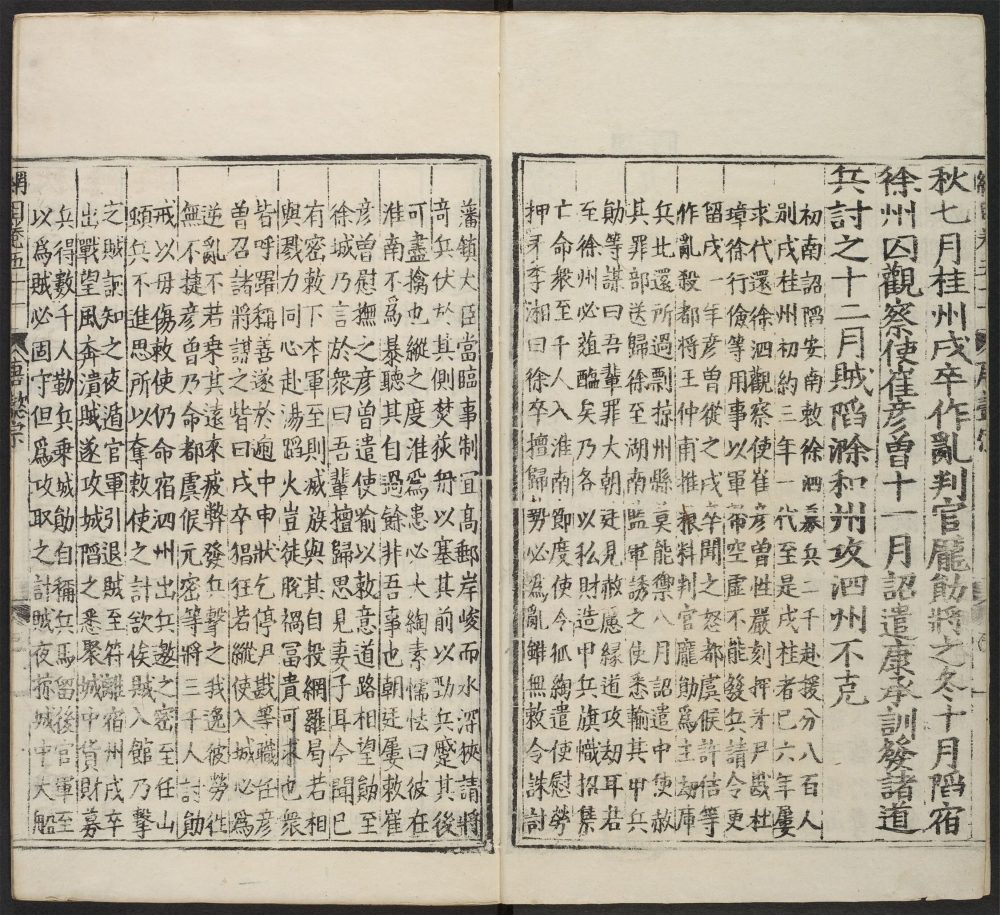 秋七月桂州戍卒作亂判官龐勛將之冬十月䧟宿
徐州囚觀察使崔彦曾十一月詔遣康承訓發諸道
兵討之十二月賊䧟滁和州攻泗州不克
初南詔䧟安南敕徐泗募兵二千赴援分八百人
别戍桂州初約三年一代至是戍桂者已六年屢
求代還徐泗觀察使崔彦曾性嚴刻押牙尹戡杜
璋徐行儉等用事以軍帑空虚不能發兵請令更
留戍一年彦曾從之戍卒聞之怒都虞候許佶等
作亂殺都将王仲甫推粮料判官龐勛爲主刼庫
兵北還所過剽掠州縣莫能禦八月詔遣中使赦
其罪部送歸徐至湖南監軍誘之使悉輸其甲兵
勛等謀曰吾輩罪大朝廷見赦慮縁道攻刼耳若
至徐州必葅醢矣乃各以私財造甲兵旗幟招集
亡命衆至千人入淮南節度使令狐綯遣使慰勞
押牙李湘曰徐卒擅歸勢必爲亂雖無敕令誅討
藩鎮大臣當臨事制宜髙郵岸峻而水深狹請將
竒兵伏於其側焚荻舟以塞其前以勁兵蹙其後
可盡擒也縱之度淮爲患必大綯素懦怯曰彼在
淮南不爲暴聽其自過餘非吾事也朝廷屢敕崔
彦曾慰撫之彦曾遣使喻以敕意道路相望勛至
徐城乃言於衆曰吾輩擅歸思見妻子耳今聞已
有密敕下本軍至則滅族與其自投網羅曷若相
與戮力同心赴湯蹈火豈徒脱禍冨貴可求也衆
皆呼躍稱善遂於逓中申狀乞停尹戡等職任彦
曾召諸將謀之皆曰戍卒猖狂若縱使入城必爲
逆亂不若乗其遠來疲弊發兵擊之我逸彼勞徃
無不捷彦曾乃命都虞候元密等將三千人討勛
戒以毋傷敕使仍命宿泗州出兵邀之密至任山
頓兵不進思所以奪敕使之計欲俟賊入館乃擊
之賊詗知之夜遁官軍引退賊至符離宿州戍卒
出戰望風奔潰賊遂攻城䧟之悉聚城中貨財募
兵得數千人勒兵乗城勛自稱兵馬留後官軍至
以爲賊必固守但爲攻取之計賊夜掠城中大船
綱目卷五十一
唐懿宗